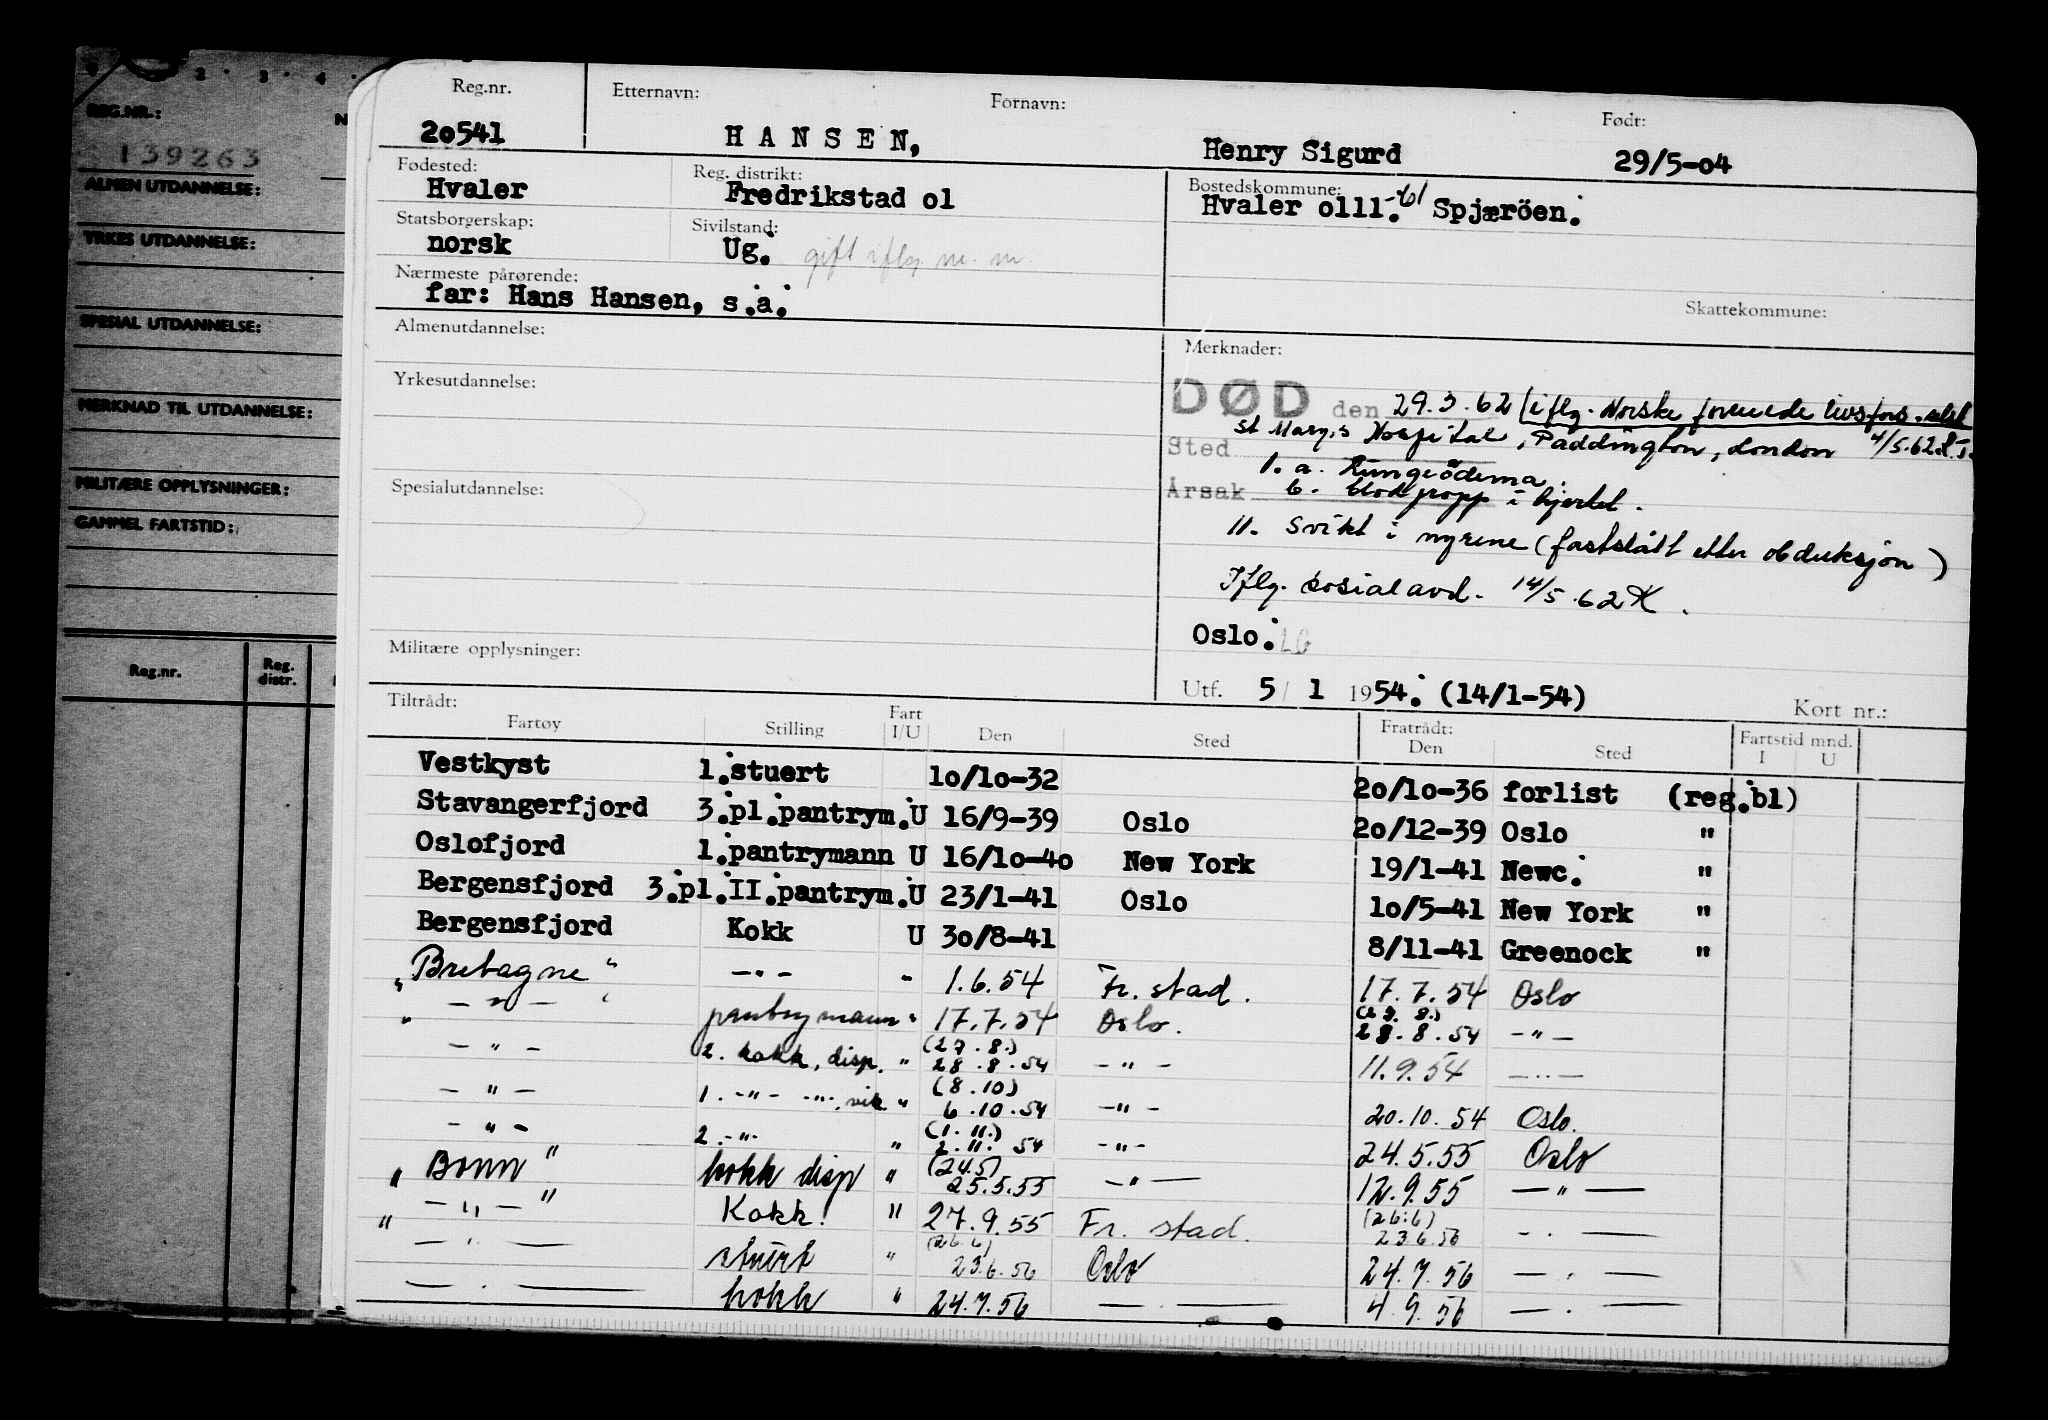 2 · 3 · 4 ·
REG.NR.:
139263
ALMEN UTDANNELSE:
YRKES UTDANNELSE:
SPESIAL UTDANNELSE:
MERKNAD TIL UTDANNELSE:
MILITÆRE OPPLYSNINGER:
GAMMEL FARTSTID:
Reg.nr. Reg. distr.
Reg.nr. Etternavn: Fornavn: Født:
20541 HANSEN, Henry Sigurd 29/5-04
Fødested: Reg. distrikt: Bostedskommune:
Hvaler Fredrikstad 01 Hvaler 0111. Spjæröen.
Statsborgerskap: Sivilstand:
norsk Ug. gift iflg. m. m.
Nærmeste pårørende:
far: Hans Hansen, s.a.
Skattekommune:
Almenutdannelse:
Merknader:
Yrkesutdannelse:
DØD den 29.3.62 (iflg. Norske forenede livsfors.
Sted St Mary's Hospital, Paddington, London 4/5.62
Årsak 1. a. Lungeödema.
b. blodpropp i hjertet.
Spesialutdannelse:
11. Svikt i nyrene (fastslått etter obduksjon)
Iflg. sosialavd. 14/5.62 K.
Oslo.
Militære opplysninger:
Utf. 5/1 1954. (14/1-54)
Kort nr.:
Tiltrådt: Fratrådt: Fartstid mnd.
Fartøy Stilling Fart I/U Den Sted Den Sted I U
Vestkyst 1.stuert 10/10-32 20/10-36 forlist (reg.bl)
Stavangerfjord 3.pl.pantrym. U 16/9-39 Oslo 20/12-39 Oslo "
Oslofjord 1.pantrymann U 16/10-40 New York 19/1-41 Newc. "
Bergensfjord 3.pl.II.pantrym. U 23/1-41 Oslo 10/5-41 New York "
Bergensfjord Kokk U 30/8-41 8/11-41 Greenock "
"Bretagne" —"— " 1.6.54 Fr.stad. 17.7.54 Oslo
" —"— " pantrymann " 17.7.54 Oslo. 28.8.54 —"—
—"— 2. kokk, disp. " (27.8.) 28.8.54 —"— 11.9.54 —"—
—"— 1. —"— —"—, vik. " (8.10) 6.10.54 —"— 20.10.54 Oslo.
—"— 2. —"— " (1.11.) 2.11.54 —"— 24.5.55 Oslo
"Bonn" kokk disp " (24.5) 25.5.55 —"— 12.9.55 —"—
" —"— " Kokk. " 27.9.55 Fr. stad. (26.6) 23.6.56 —"—
—"— stuert " (26.6) 23.6.56 Oslo 24.7.56 —"—
—"— kokk " 24.7.56 —"— 4.9.56 —"—